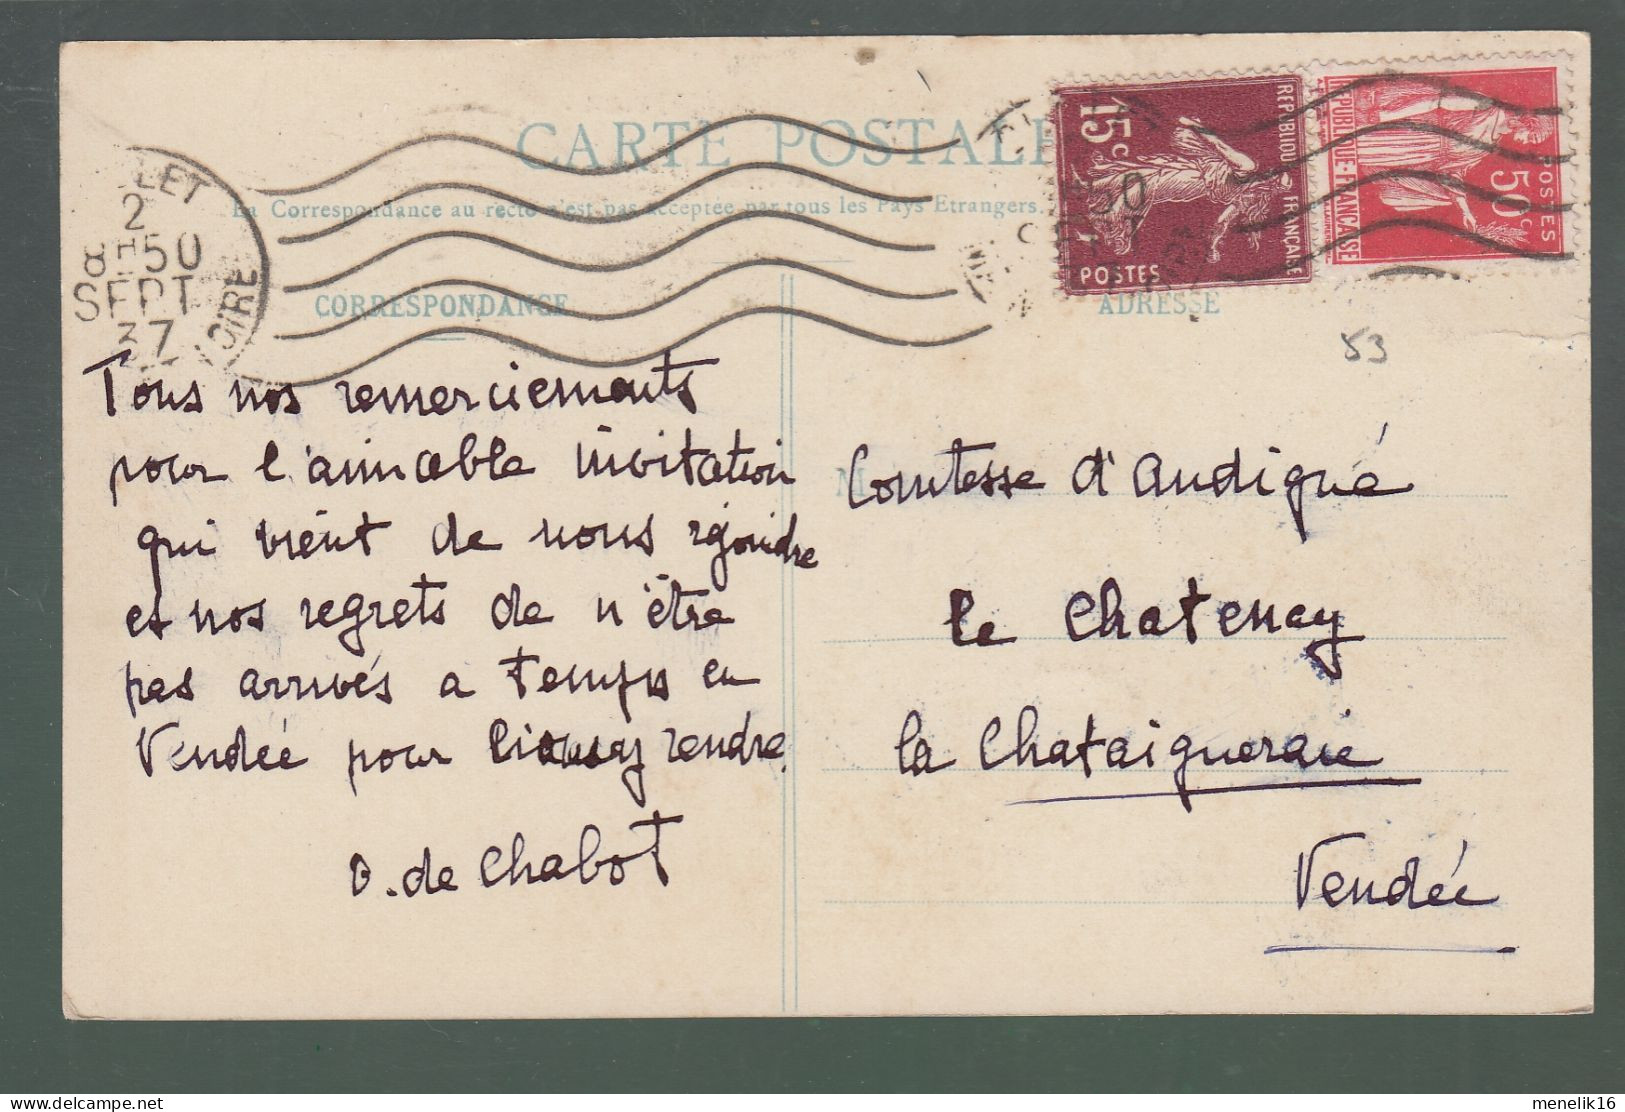 CARTE POSTALE
La Correspondance au recto n'est pas acceptée par tous les Pays Etrangers.
CORRESPONDANCE
ADRESSE
LET
2
8H50
SEPT
37
OIRE
REPUBLIQUE FRANÇAISE
15c
POSTES
REPUBLIQUE-FRANÇAISE
50c
POSTES
53
Tous nos remerciements
pour l'aimable invitation
qui vient de nous rejoindre
et nos regrets de n'être
pas arrivés a temps en
Vendée pour rendre.
O. de Chabot
Comtesse d'Andigné
le Chatenay
la Chataigneraie
Vendée
menelik16